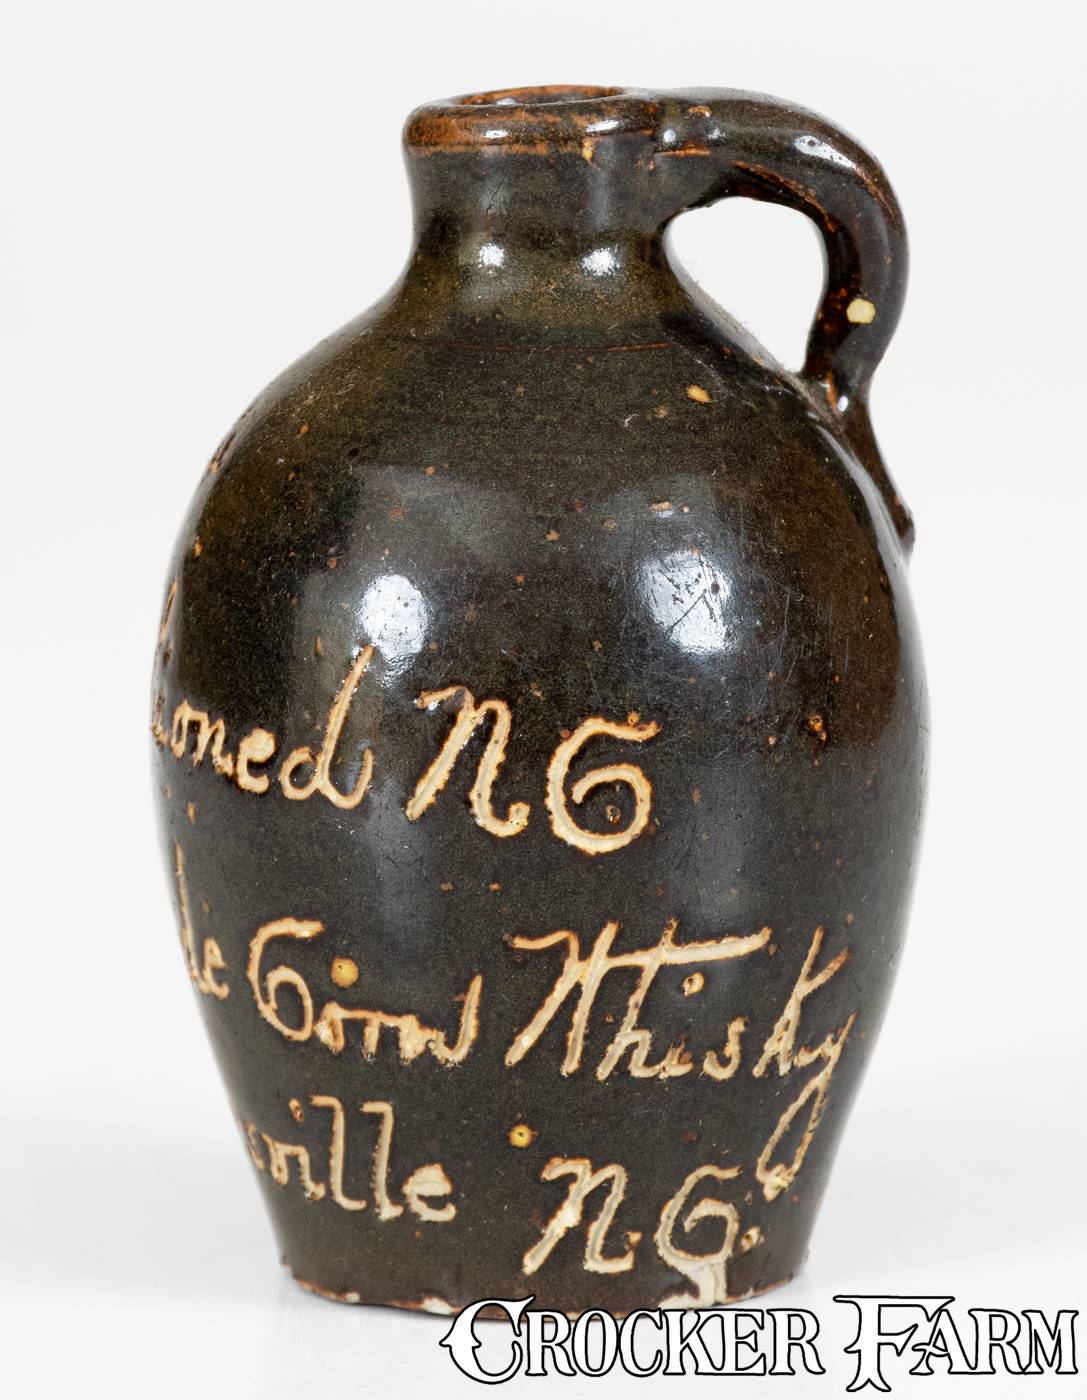 ioned NC
de Corn Whisky
sville NC.
CROCKER FARM